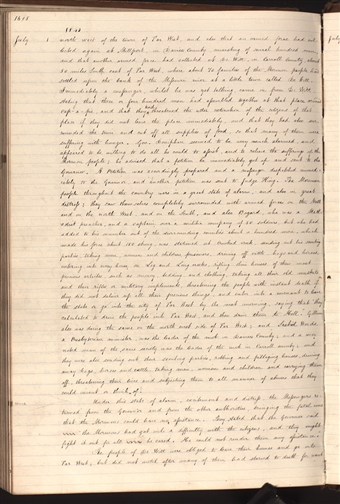 1838
July 1 north west of the town of Far West, and also that an armed force had col-
lected again at Millport, in Daviess county, consisting of several hundred men,
and that another armed force had collected at De Witt, in Carroll county, about
50 miles South east of Far West, where about 70 families of the Mormon people had
settled upon the bank of the Missouri river at a little town called De Witt.
Immediately a messenger, whilst he was yet talking, came in from De Witt
stating that three or four hundred men had assembled together at that place armed
cap-a-pie, and that they threatened the utter extinction of the citizens of that
place if they did not leave the place immediately, and that they had also sur-
rounded the town and cut off all supplies of food, so that many of them were
suffering with hunger. Gen. seemed to be very much alarmed, and
appeared to be willing to do all he could to assist, and to relieve the sufferings of the
Mormon people; he advised that a petition be immediately got up and sent to the
Governor. A Petition was accordingly prepared and a messenger despatched immed-
iately to the Governor and another petition was sent to Judge King. The Mormon
people throughout the country were in a great state of alarm, and also in great
distress; they saw themselves completely surrounded with armed forces on the North
and on the north West, and on the South, and also Bogard, who was a Meth-
odist preacher, and a captain over a militia company of 50 soldiers but who had
added to his number out of the surrounding counties about a hundred more, which
made his force about 150 strong, was stationed at Crooked creek, sending out his scouting
parties, taking men, women and children prisoners, driving off cattle, hogs and horses,
entering into every house on Log and Long creeks, rifling their houses of their most
precious articles such as money, bedding, and clothing, taking all their old muskets
and their rifles or military implements, threatening the people with instant death if
they did not deliver up all their precious things, and enter into a covenant to leave
the state or go into the city of Far West by the next morning, saying that they
calculated to drive the people into Far West, and then drive them to Hell. Gillum
also was doing the same on the north west side of Far West; and Sashiel Woods,
a Presbyterian minister, was the leader of the mob in Daviess County, and a very
noted man of the same society was the leader of the mob in Carroll county; and
they were also sending out their scouting parties, robbing and pillaging houses, driving
away hogs, horses and cattle, taking men, women and children and carrying them
off, threatening their lives and subjecting them to all manner of abuses that they
could invent or think of.
Under this state of alarm, excitement and distress, the Messengers re-
turned from the Governor and from the other authorities, bringing the fatal news
that the Mormons could have no assistance. They stated that the Governor said
the Mormons had got into a difficulty with the citizens, and they might
fight it out for all he cared. He could not render them any assistance.
The people of De Witt were obliged to leave their homes and go into
Far West, but did not until after many of them had starved to death for want